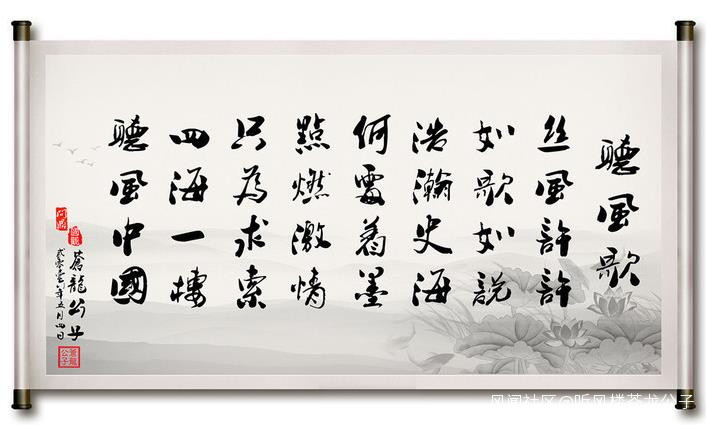 聽風歌
丝風許許
如歌如説
浩瀚史海
何需着墨
點燃激情
只為求索
四海一樓
聽風中國
蒼龍公子
貳零壹六年五月四日
蒼龍公子
风闻社区@听风楼苍龙公子